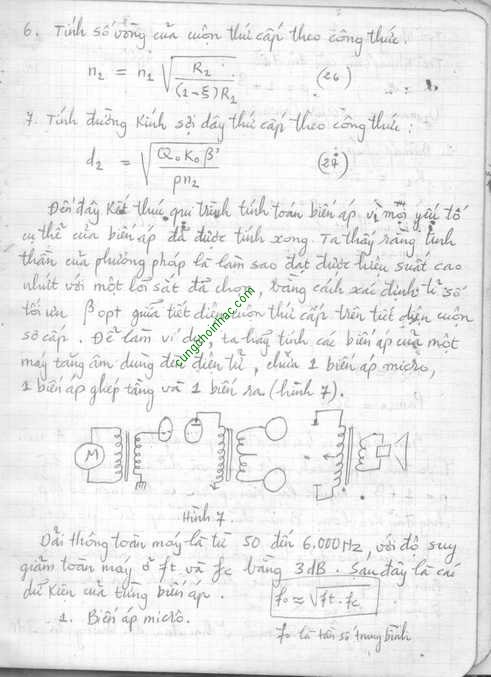 6. Tính số vòng của cuộn thứ cấp theo công thức.
n₂ = n₁ √(R₂ / (1-ξ)R₂) (26)
7. Tính đường kính sợi dây thứ cấp theo công thức:
d₂ = √(Q₀K₀β' / pn₂) (27)
Đến đây kết thúc qui trình tính toán biến áp vì mọi yếu tố
cụ thể của biến áp đã được tính xong. Ta thấy rằng tinh
thần của phương pháp là làm sao đạt được hiệu suất cao
nhứt với một lõi sắt đã chọn, bằng cách xác định tỉ số
tối ưu β opt giữa tiết diện cuộn thứ cấp trên tiết diện cuộn
sơ cấp. Để làm ví dụ, ta hãy tính các biến áp của một
máy tăng âm dùng đèn điện tử, chứa 1 biến áp micrô,
1 biến áp ghép tầng và 1 biến ra (hình 7).
cungchoinhac.com
M
Hình 7.
Dải thông toàn máy là từ 50 đến 6.000Hz, với độ suy
giảm toàn máy ở ft và fc bằng 3dB. Sau đây là các
dữ kiện của từng biến áp.
f₀ ≈ √ft.fc
1. Biến áp micrô.
f₀ là tần số trung bình